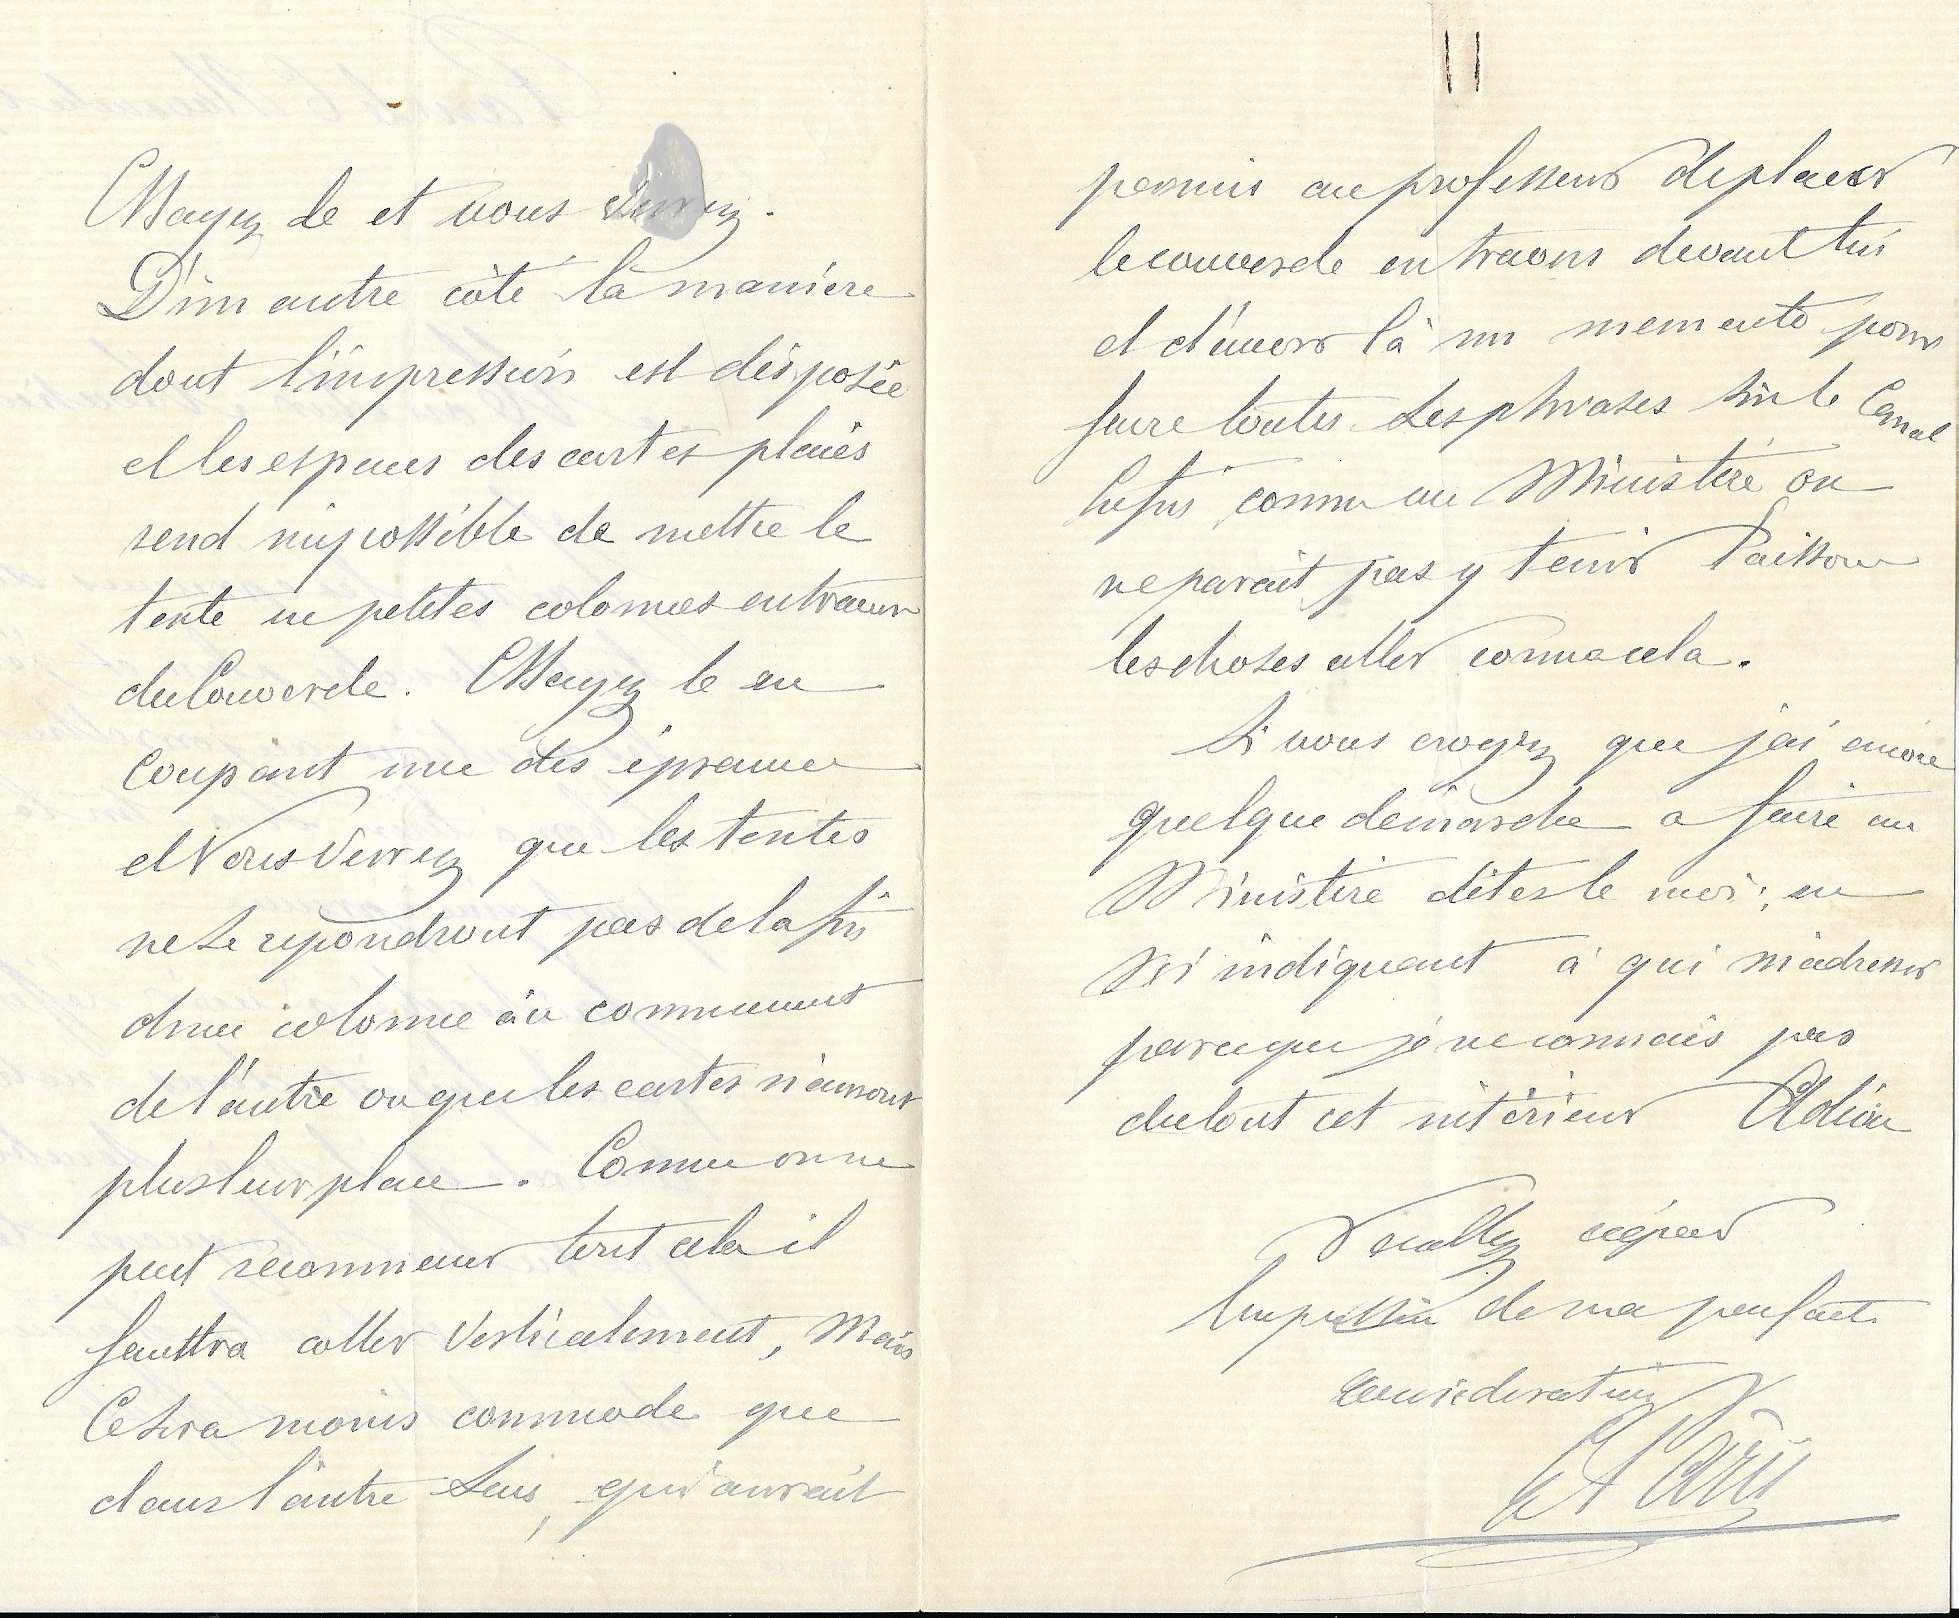 Essayez le et vous verrez.
D'un autre côté la manière
dont l'impression est disposée
et les espaces des cartes placés
rend impossible de mettre le
texte en petites colonnes en travers
du Couvercle. Essayez le en
coupant une des épreuves
et Vous Verrez que les textes
ne se repondront pas de la fin
d'une colonne au commencement
de l'autre ou que les cartes n'auront
plus leur place. Comme on ne
peut recommencer tout cela il
faudra coller Verticalement, Mais
Ce sera moins commode que
dans l'autre sens, qui aurait
permis au professeur de placer
le couvercle en travers devant lui
et d'avoir là un memento pour
faire toutes ses phrases sur le Canal
comme au Ministère on
ne parait pas y tenir laissons
les choses aller comme cela.
Si vous croyez que j'ai encore
quelque démarche a faire au
Ministère dites le moi; en
m'indiquant à qui m'adresser
parce que je ne connais pas
du tout cet intérieur
Veuillez agréer
l'expression de ma parfaite
consideration